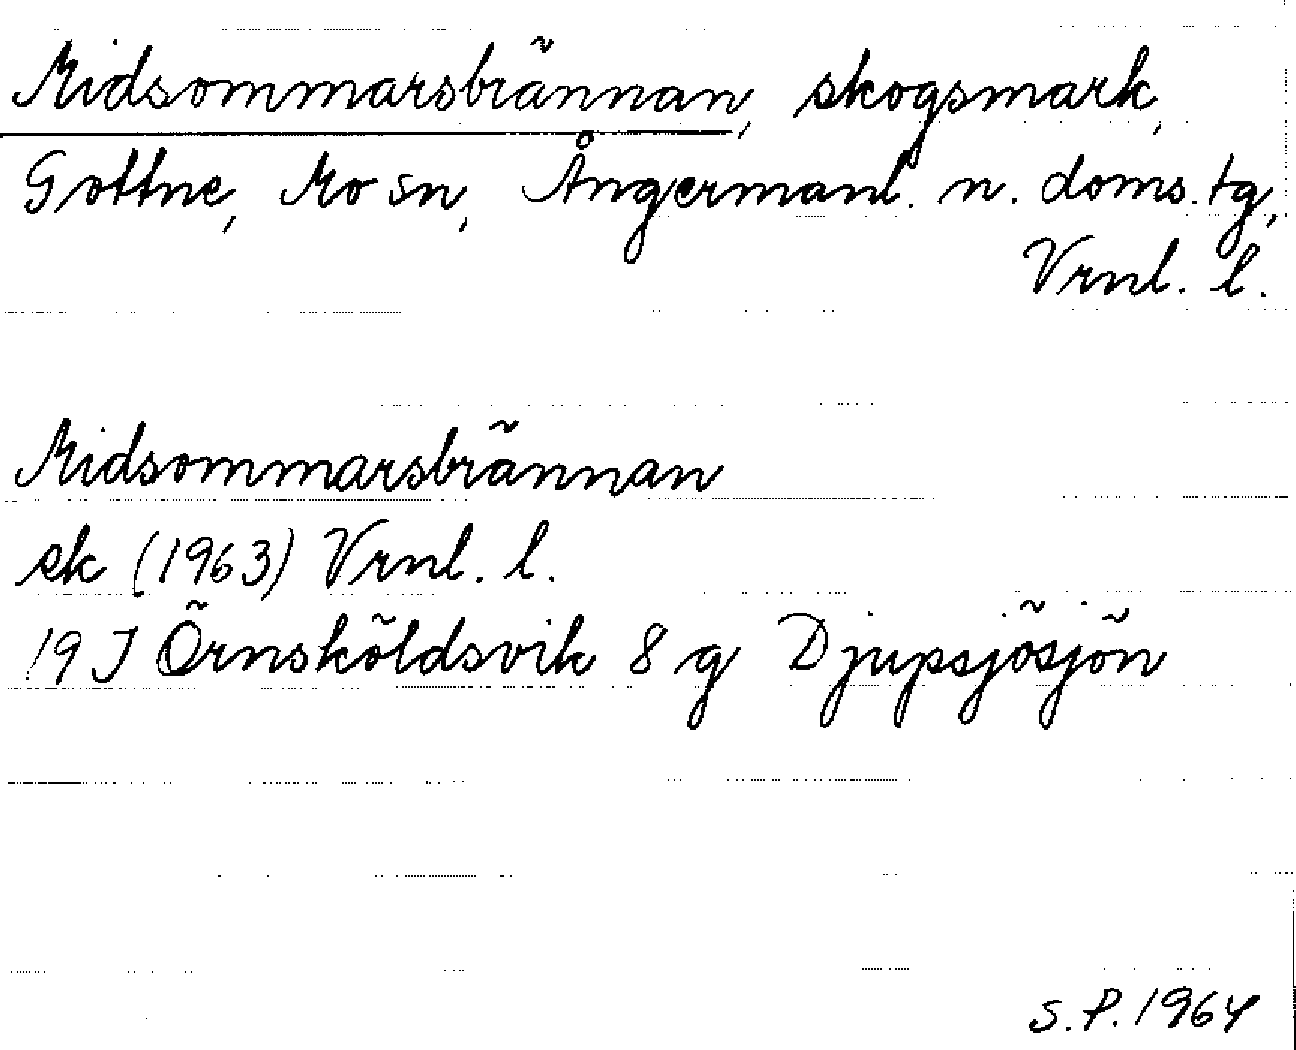 Midsommarsbrännan, skogsmark,
Gottne, Mo sn, Ångermanl. n. doms. tg,
Vrnl. l.
Midsommarsbrännan
ek (1963) Vrnl. l.
19 J Örnsköldsvik 8 g Djupsjösjön
S.P. 1964